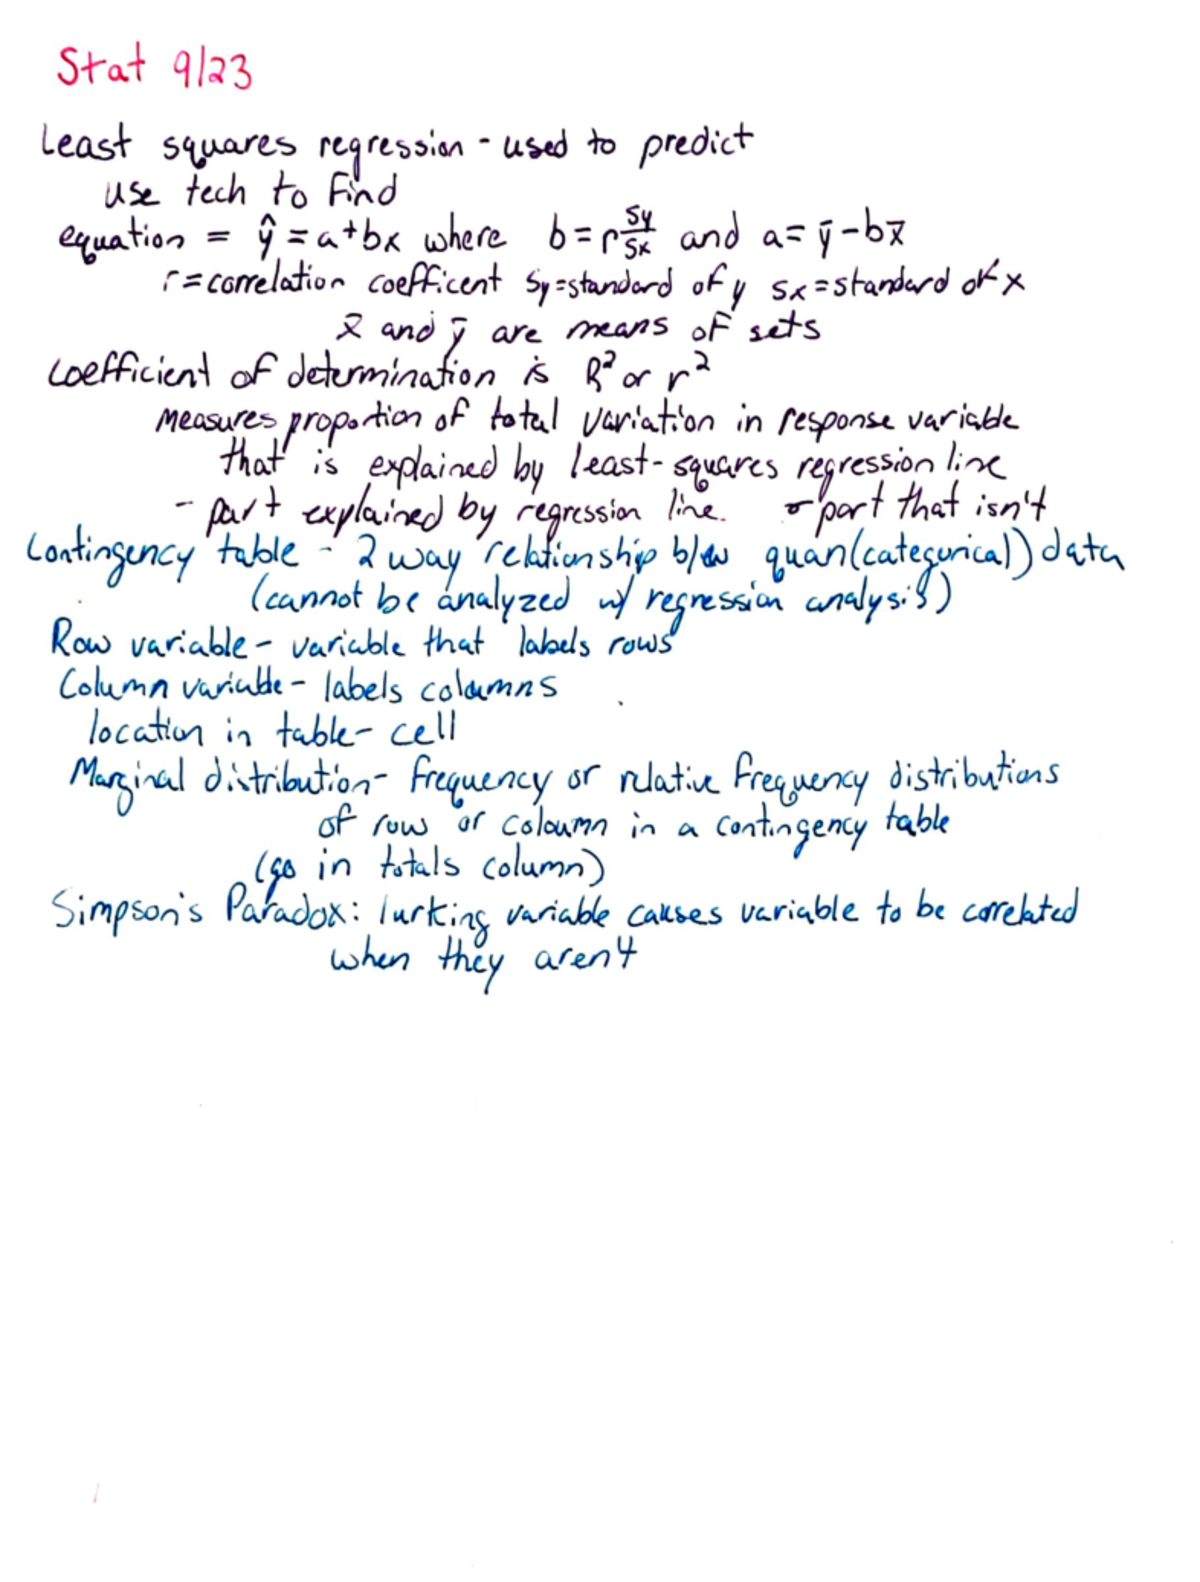 Stat 9/23
Least squares regression - used to predict
use tech to find
equation = ŷ = a+bx where b = r Sy/Sx and a = ȳ - bx̄
r = correlation coefficent Sy = standard of y Sx = standard of x
x̄ and ȳ are means of sets
Coefficient of determination is R² or r²
measures proportion of total variation in response variable
that is explained by least-squares regression line
- part explained by regression line. - part that isn't
Contingency table - 2 way relationship b/w quan(categorical)) data
(cannot be analyzed w/ regression analysis)
Row variable - variable that labels rows
Column variable - labels coloumns
location in table - cell
Marginal distribution - frequency or relative frequency distributions
of row or coloumn in a contingency table
(go in totals column)
Simpson's Paradox: lurking variable causes variable to be correlated
when they aren't